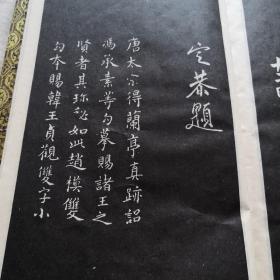 定恭題
唐太宗得蘭亭真跡詔
馮承素等勾摹賜諸王之
賢者其珎秘如此趙模雙
勾本賜韓王貞觀雙字小